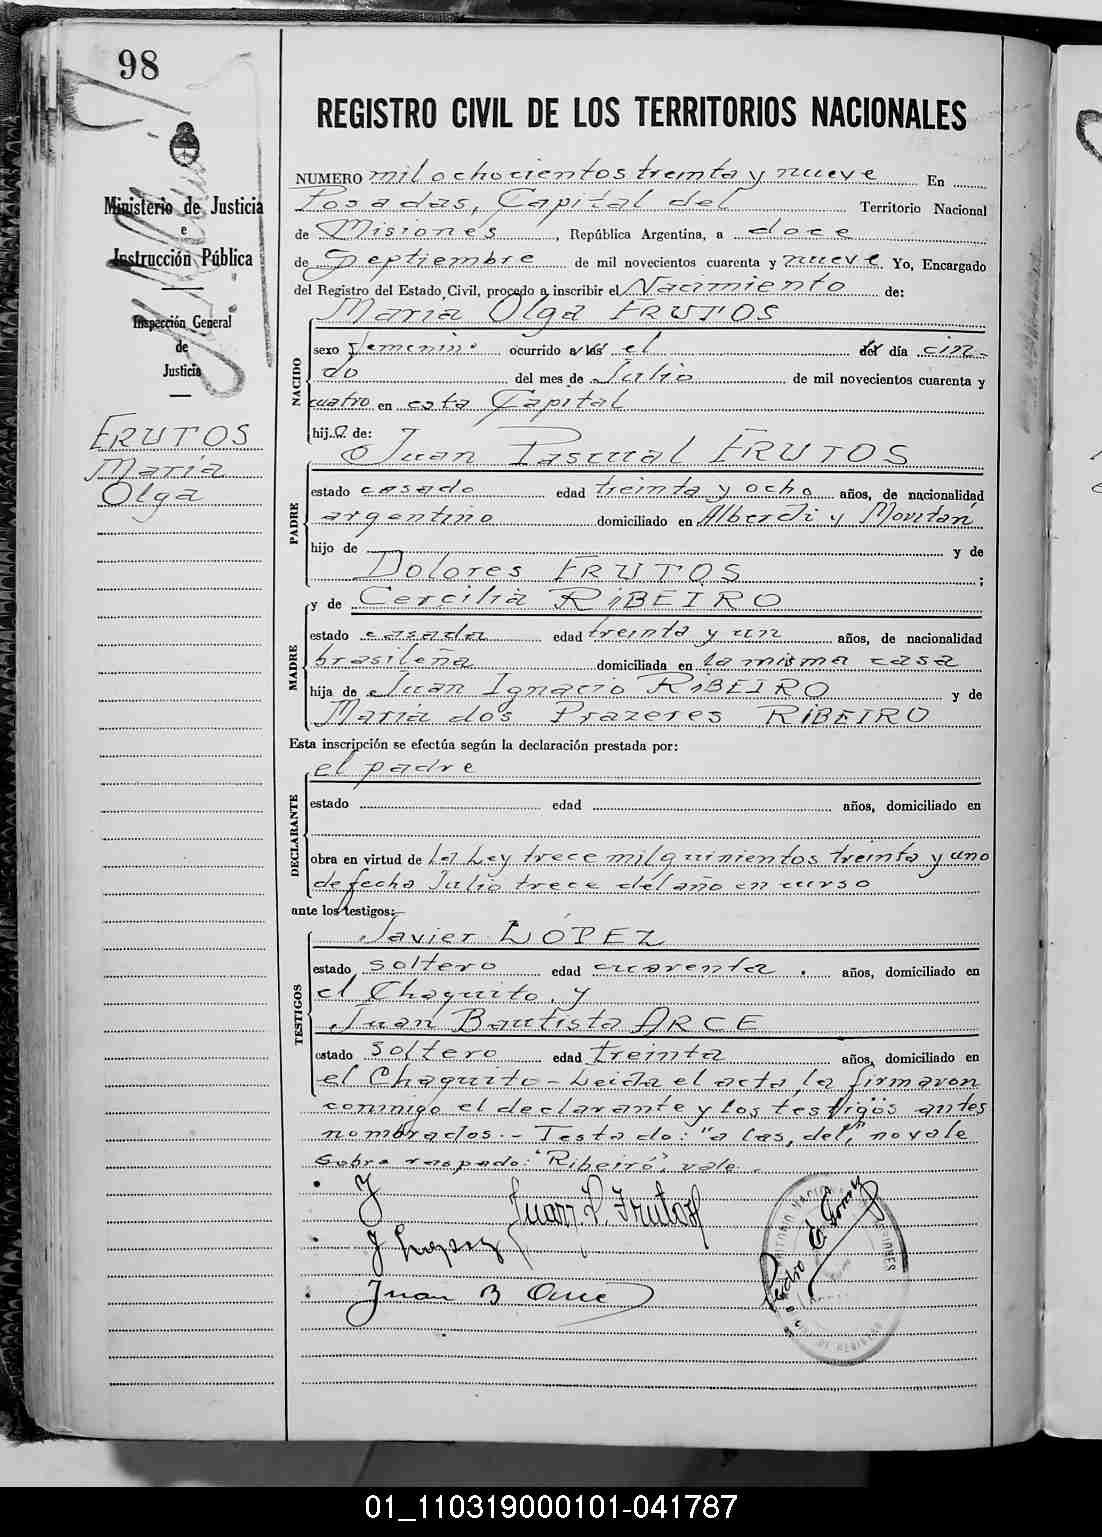 98
REGISTRO CIVIL DE LOS TERRITORIOS NACIONALES
Ministerio de Justicia
e
Instrucción Pública
Inspección General
de
Justicia
FRUTOS
María
Olga
NUMERO mil ochocientos treinta y nueve En
Posadas, Capital del Territorio Nacional
de Misiones, República Argentina, a doce
de Septiembre de mil novecientos cuarenta y nueve Yo, Encargado
del Registro del Estado Civil, procedo a inscribir el Nacimiento de:
NACIDO
María Olga FRUTOS
sexo femenino ocurrido a las el del día cin-
co del mes de Julio de mil novecientos cuarenta y
cuatro en esta Capital
hija de:
Juan Pascual FRUTOS
PADRE
estado casado edad treinta y ocho años, de nacionalidad
argentino domiciliado en Alberdi y
hijo de y de
Dolores FRUTOS ;
y de Cercilia RIBEIRO
MADRE
estado casada edad treinta y un años, de nacionalidad
brasileña domiciliada en la misma casa
hija de Juan Ignacio RIBEIRO y de
María dos Prazeres RIBEIRO
Esta inscripción se efectúa según la declaración prestada por:
DECLARANTE
el padre
estado edad años, domiciliado en
obra en virtud de la Ley trece mil quinientos treinta y uno
de fecha Julio trece del año en curso
ante los testigos:
TESTIGOS
Javier LÓPEZ
estado soltero edad cuarenta . años, domiciliado en
el Chaquito, y
Juan Bautista ARCE
estado soltero edad treinta años, domiciliado en
el Chaquito - Leida el acta, la firmaron
conmigo el declarante y los testigos antes
nombrados.- Testado: "a las, del," no vale
Sobre raspado: "Ribeiro", vale.
J Juan P. Frutos
J Lopez
Juan B Arce
01_110319000101-041787